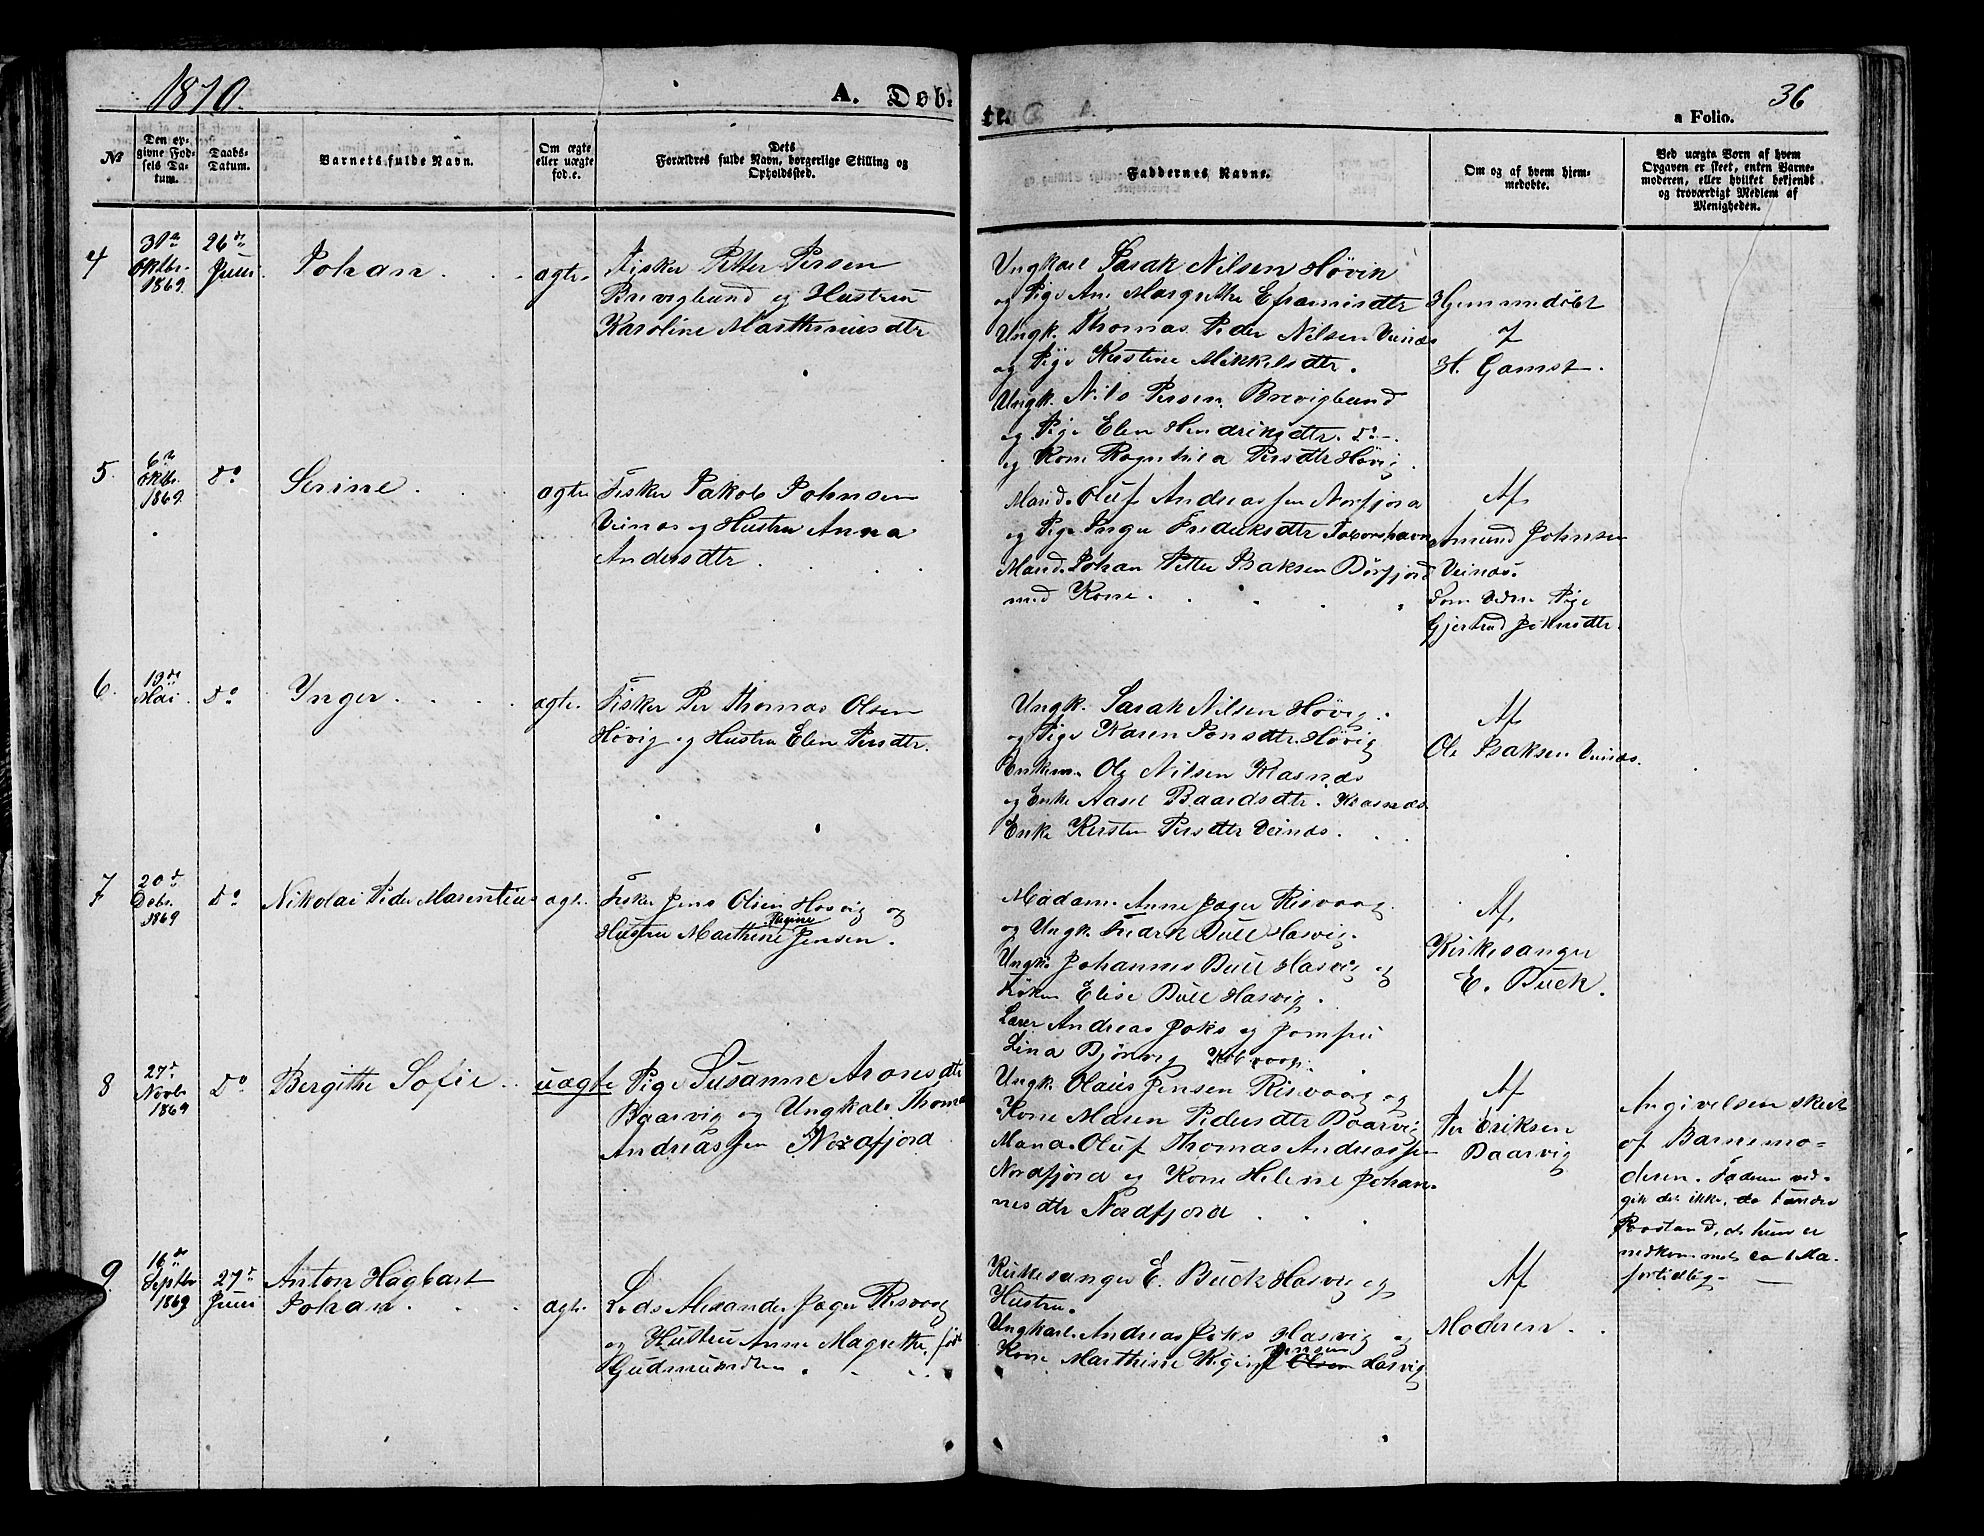 1870.
A. Døb-
te.
36
a Folio.
No
Den op-
givne Fød-
sels Da-
tum.
Daabs-
Datum.
Barnets fulde Navn.
Om ægte
eller uægte
fød.e.
Dets
Forældres fulde Navn, borgerlige Stilling og
Opholdssted.
Faddernes Navne.
Om og af hvem hjem-
medøbte.
Ved uægte Børn af hvem
Opgaven er skeet, enten Barne-
moderen, eller hvilket bekjendt
og troværdigt Medlem af
Menigheden.
4
31te
Oktbr.
1869.
26de
Juni.
Johan.
ægte
Fisker Petter Persen
Brevigbund og Hustru
Karoline Marthiniusdtr
Ungkarl IsrAk Nilsen Høvik
og Pige Ane Margrethe Efraimsdtr
Ungk. Thomas Peder Nilsen Veinæs
og Pige Kirstine Mikkelsdtr.
Ungk. Nils Persen Brevigbund
og Pige Elen Hendriksdtr. Do.
og Kone Ragnhild Persdtr Høvig
Hjemmedøbt
af
H. Gamst.
5.
6te
Oktbr.
1869
Do
Serine.
ægte
Fisker Jakob Johnsen
Veinæs og Hustru Anna
Andersdtr
Mand. Oluf Andreassen Norfjord
og Pige Inger Fredriksdtr
Mand. Johan Petter Isaksen Børfjord
med Kone.
Af
Amund Johnsen
Veinæs.
Gjertrud Johnsdtr.
6.
19de
Mai.
Do
Ynger.
ægte.
Fisker Per Thomas Olsen
Høvig og Hustru Elen Persdtr.
Ungk. Israk Nilsen Høvig.
og Pige Karen Jonsdtr. Høvig
Enkem. Ole Nilsen Klasnæs
og Enke Aasel Baardsdtr. Klasnæs
Enke Kirsten Persdtr Veinæs.
Af
Ole Isaksen Veinæs.
7
20de
Debr.
1869
Do
Nikolai Peder Marentius
ægte.
Fisker Jens Olsen Hasvig og
Hustru Marthine Regine Jensen.
Madam Anne Jæger Risvaag
og Ungk. Fredrk Buck Hasvig.
Ungk. Johannes Buck Hasvig og
Frøken Elise Buck Hasvig.
Lærer Andreas Joks og Jomfru
Lina Bjørvig
Af
Kirkesanger
E. Buck.
8
27de
Novbr.
1869
Do
Bergithe Sofie.
uægte
Pige Susanne Aronsdtr
Baarvig og Ungkarl Thomas
Andreassen Nordfjord
Ungk. Olaus Jensen Risvaag og
Kone Maren Pedersdtr Baarvig
Mand. Oluf Thomas Andreassen
Nordfjord og Kone Helene Johan-
nesdtr Nordfjord
Af
Per Eriksen
Baarvig
Angivelsen skeet
af Barnemo-
deren. Faderen ved-
gik det ikke, da
Paastand, at hun er
nedkommet ca 1 Ma.
fortidlig.
9.
16de
Septbr
1869
27de
Juni
Anton Hagbart
Johan.
ægte.
Lods Alexander Jæger Risvaag
og Hustru Anne Magrethe, født
Gudmundsen.
Kirkesanger E. Buck Hasvig og
Hustru.
Ungkarl. Andreas Joks Hasvig og
Kone Marthine Regine Jensen Olsen Hasvig
Af
Moderen.